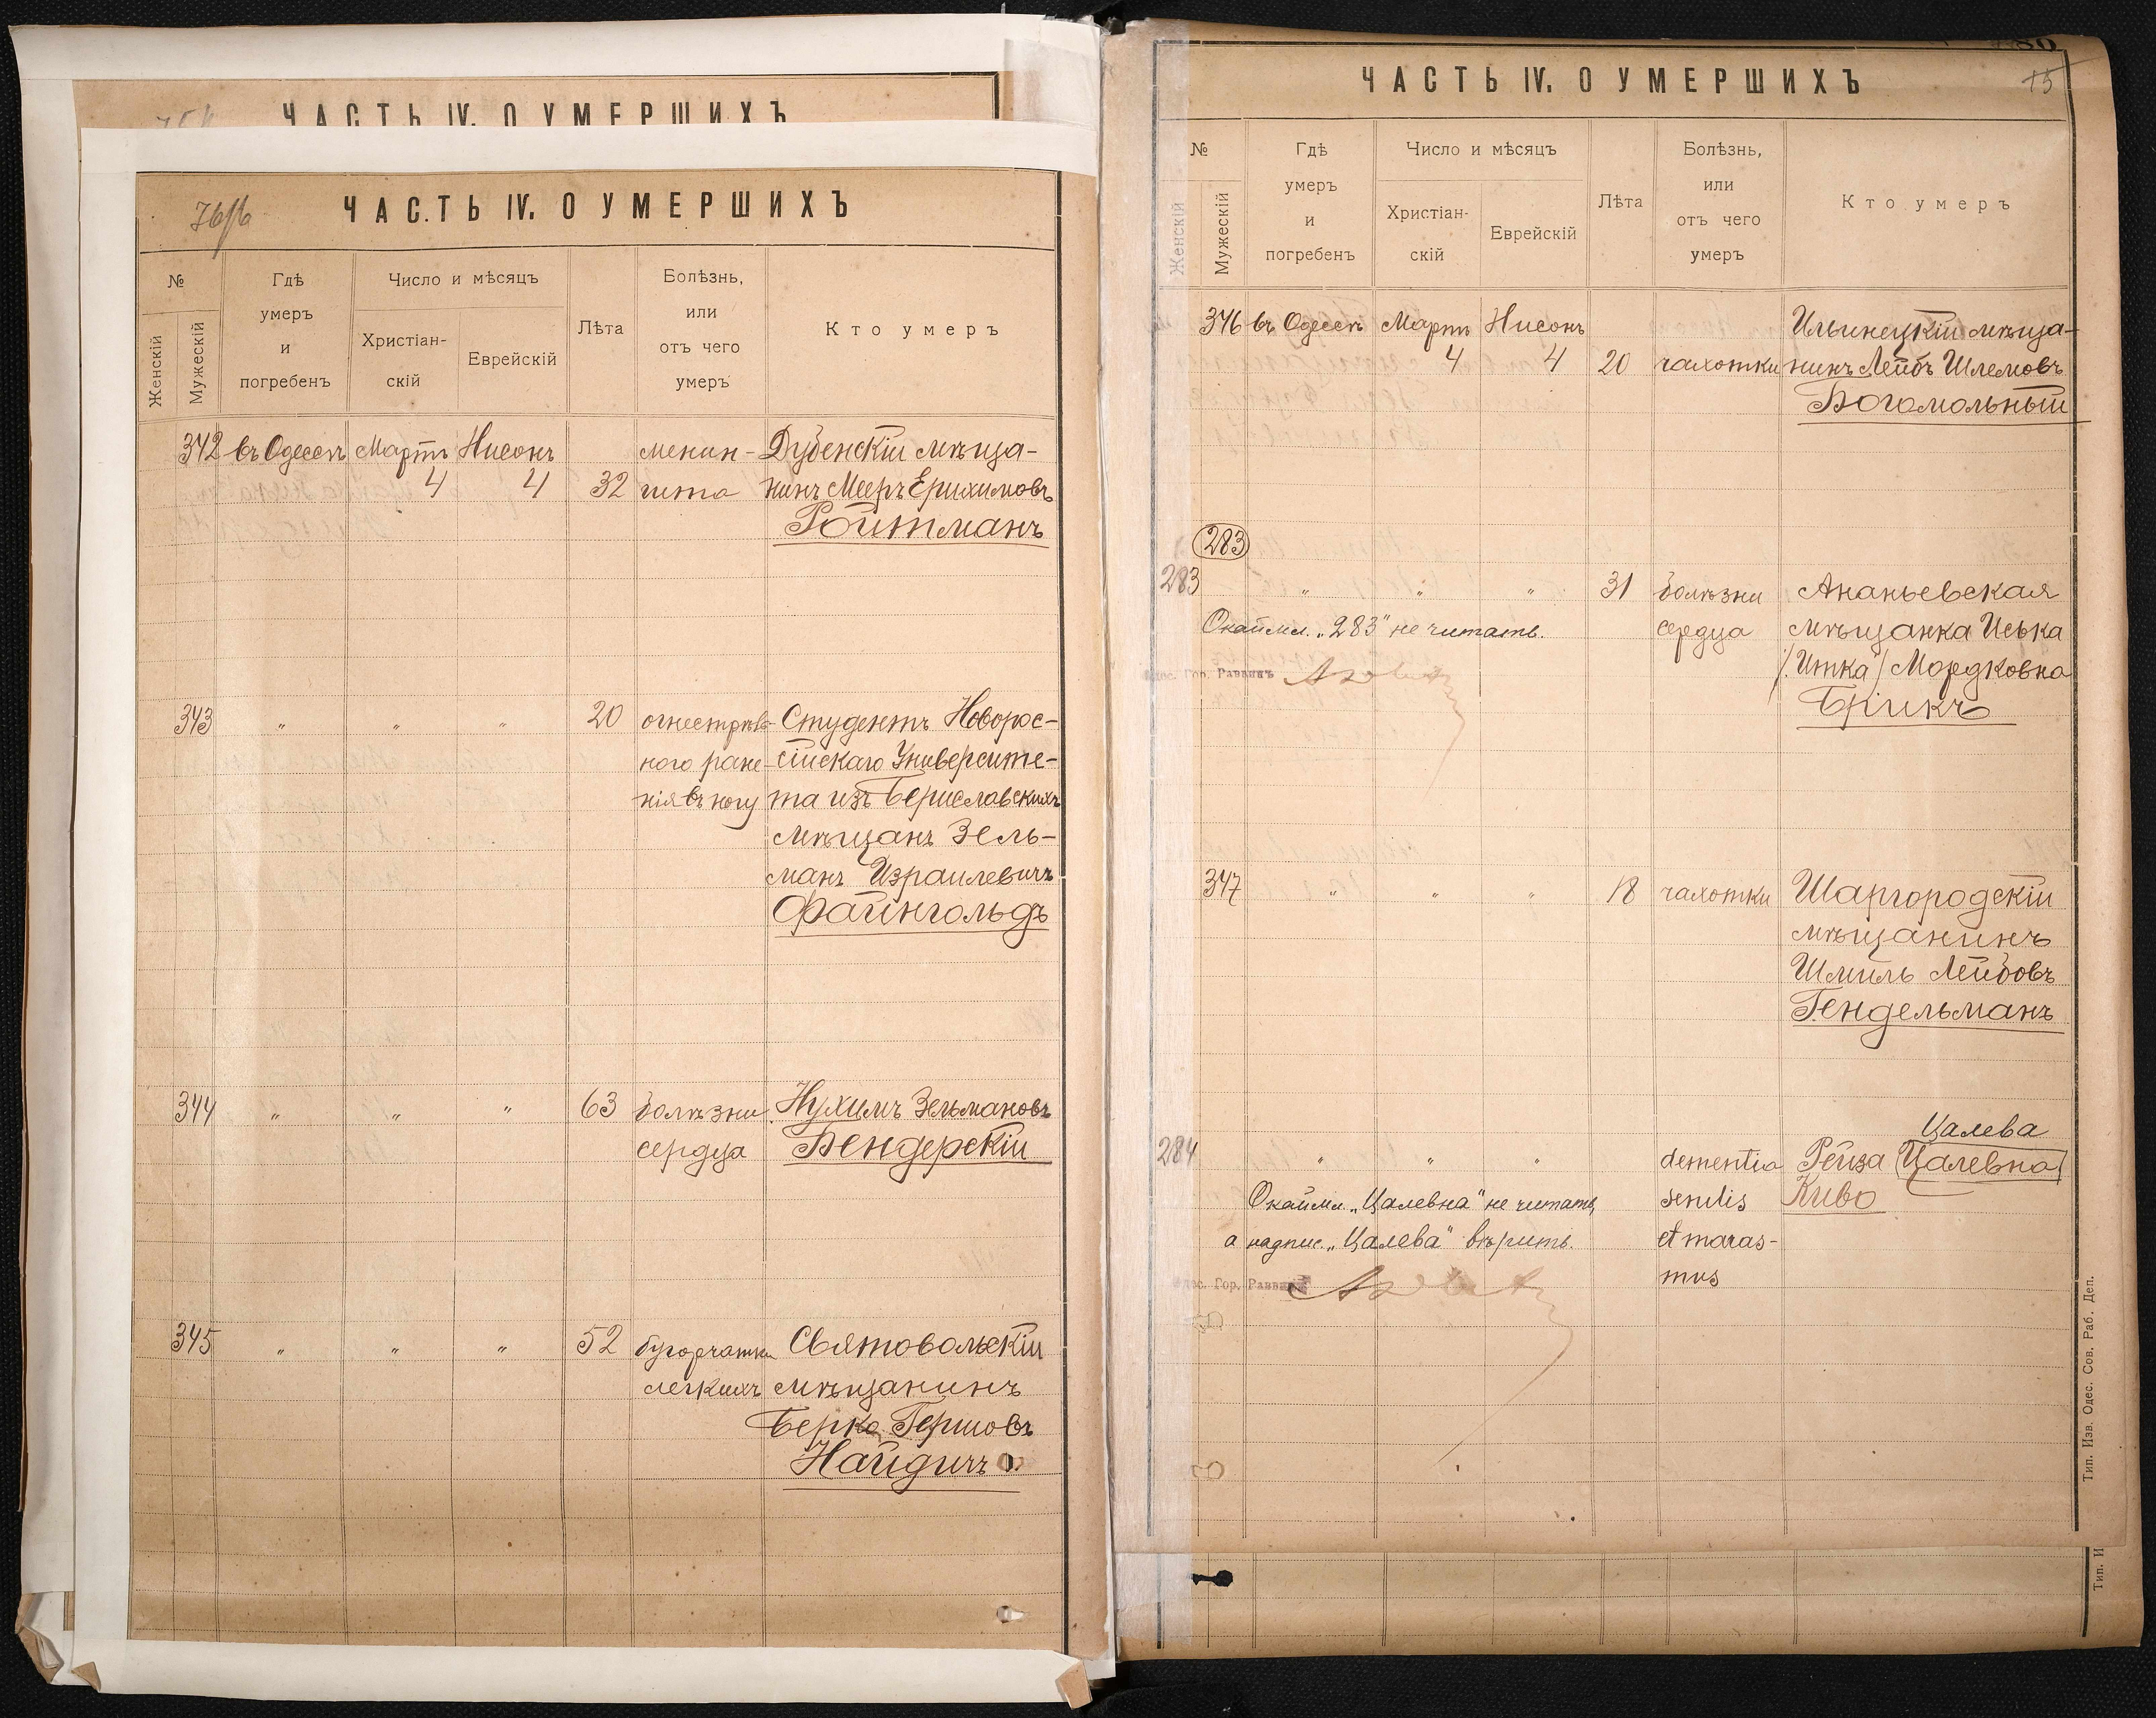 ЧАСТЬ IV. О УМЕРШИХЪ
ЧАСТЬ IV. О УМЕРШИХЪ
№
Женскій
Мужескій
Гдѣ
умеръ
и
погребенъ
Число и мѣсяцъ
Христіан-
скій
Еврейскій
Лѣта
Болѣзнь,
или
отъ чего
умеръ
Кто умеръ
342 въ Одессѣ Мартъ Нисонъ менин- Дубенскій мѣща-
4 4 32 гита нинъ Мееръ Ерихимовъ
Ройтманъ
343 " " " 20 огнестрѣль- Студентъ Новорос-
ного ране- сійскаго Университе-
нія въ ногу та изъ Бериславскихъ
мѣщанъ Зель-
манъ Израилевичъ
Файнгольдъ
344 " " " 63 болѣзни Нухимъ Зельмановъ
сердца Бендерскій
345 " " " 52 бугорчатки Святовольскій
легкихъ мѣщанинъ
Берко Гершовъ
Найдичъ
80
75
ЧАСТЬ IV. О УМЕРШИХЪ
№
Женскій
Мужескій
Гдѣ
умеръ
и
погребенъ
Число и мѣсяцъ
Христіан-
скій
Еврейскій
Лѣта
Болѣзнь,
или
отъ чего
умеръ
Кто умеръ
346 въ Одессѣ Мартъ Нисонъ Ильинецкій мѣща-
4 4 20 чахотки нинъ Лейбъ Шлемовъ
Богомольный
283
283 " " " 31 болѣзни Ананьевская
Окаймл. „283" не читать. сердца мѣщанка Иська
Одес. Гор. Раввинъ /Итка/ Мордковна
Брикъ
347 " " " 18 чахотки Шаргородскій
мѣщанинъ
Шмиль Лейбовъ
Гендельманъ
Цалева
284 " " " dementia Рейза Цалевна
Окаймл. „Цалевна" не читать, senilis Киво
а надпис. „Цалева" вѣрить. et maras-
Одес. Гор. Раввинъ mus
Тип. Изв. Одес. Сов. Раб. Деп.
Тип. И